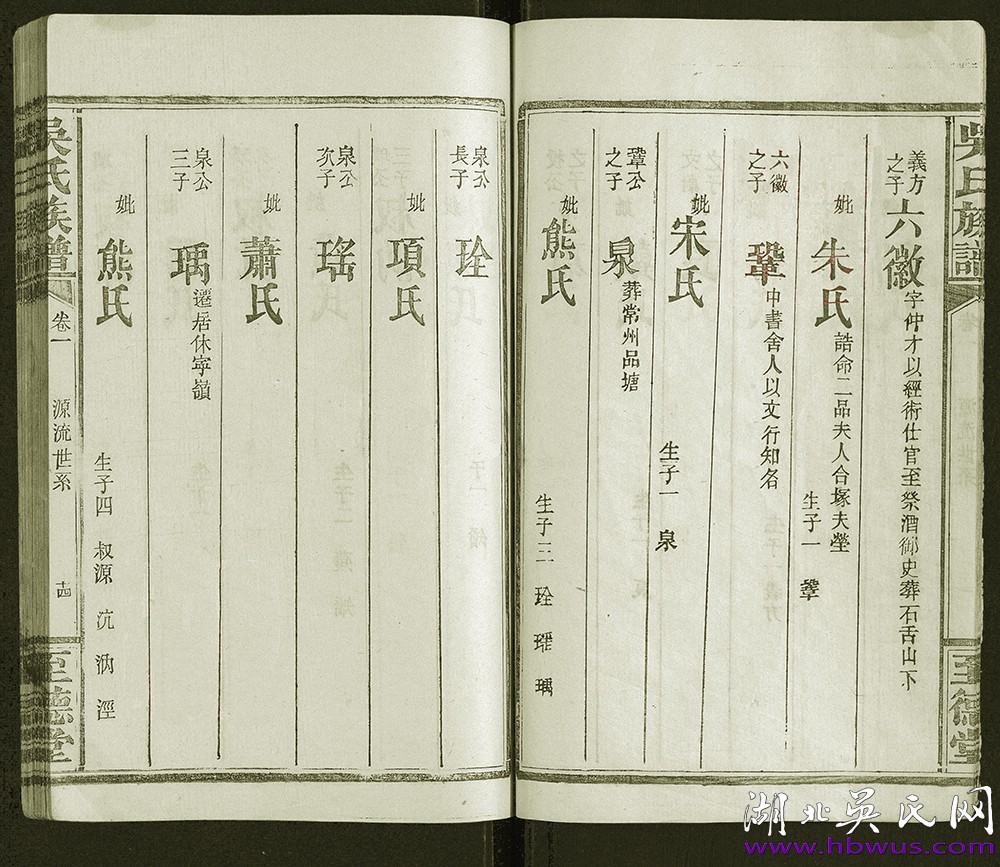 吳氏族譜
至德堂
義方之子 六徽 字仲才以經術仕官至祭酒御史葬石舌山下
妣 朱氏 誥命二品夫人合塚夫塋 生子一 鞏
六徽之子 鞏 中書舍人以文行知名
妣 宋氏 生子一 泉
鞏公之子 泉 葬常州品塘
妣 熊氏 生子三 琻 瑶 瑀
泉公長子 琻
妣 項氏
泉公次子 瑤
妣 蕭氏
泉公三子 瑀 遷居休寧嶺
妣 熊氏 生子四 叔源 沆 汭 涇
吳氏族譜 卷一 源流世系 十四 至德堂
湖北吳氏网
www.hbwus.com